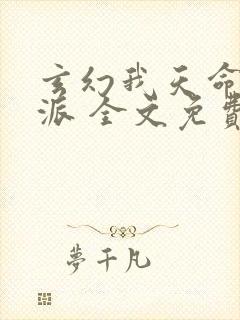 玄幻我天命
派 全文免費
夢千凡